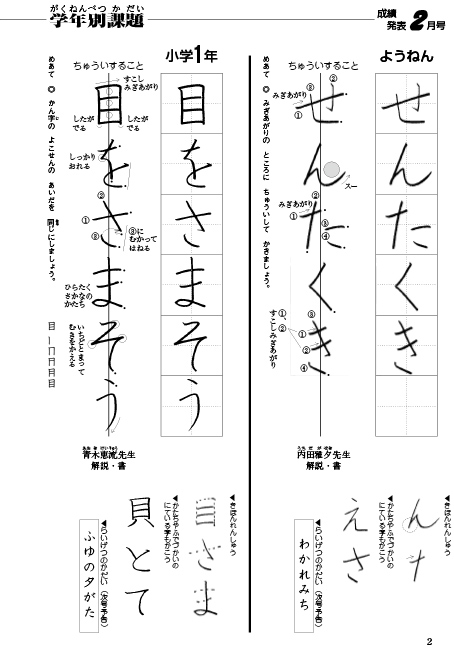 がくねんべつ か だい
学年別課題
成績
発表2月号
ようねん
ちゅういすること
めあて ◎ みぎあがりの ところに ちゅういして かきましょう。
せんたくき
せんたくき
みぎあがり
①
②
③
スー
みぎあがり
①
②
③
④
①、②
すこしみぎあがり
①
②
③
④
内田雅夕先生
解説・書
◀きほんれんしゅう
ん
◀かたちやふでづかいの
にている字もかこう
えさ
◀らいげつのかだい（次号予告）
わかれみち
小学1年
ちゅういすること
めあて ◎ かん字の よこせんの あいだを 同じにしましょう。
目をさまそう
目をさまそう
すこし
みぎあがり
したが
でる
したが
でる
しっかり
おれる
①
②
③
③に
むかって
はねる
ひらたく
さかなの
かたち
いちどとまって
むきをかえる
青木恵流先生
解説・書
◀きほんれんしゅう
目さま
◀かたちやふでづかいの
にている字もかこう
貝とて
◀らいげつのかだい（次号予告）
ふゆの夕がた
2